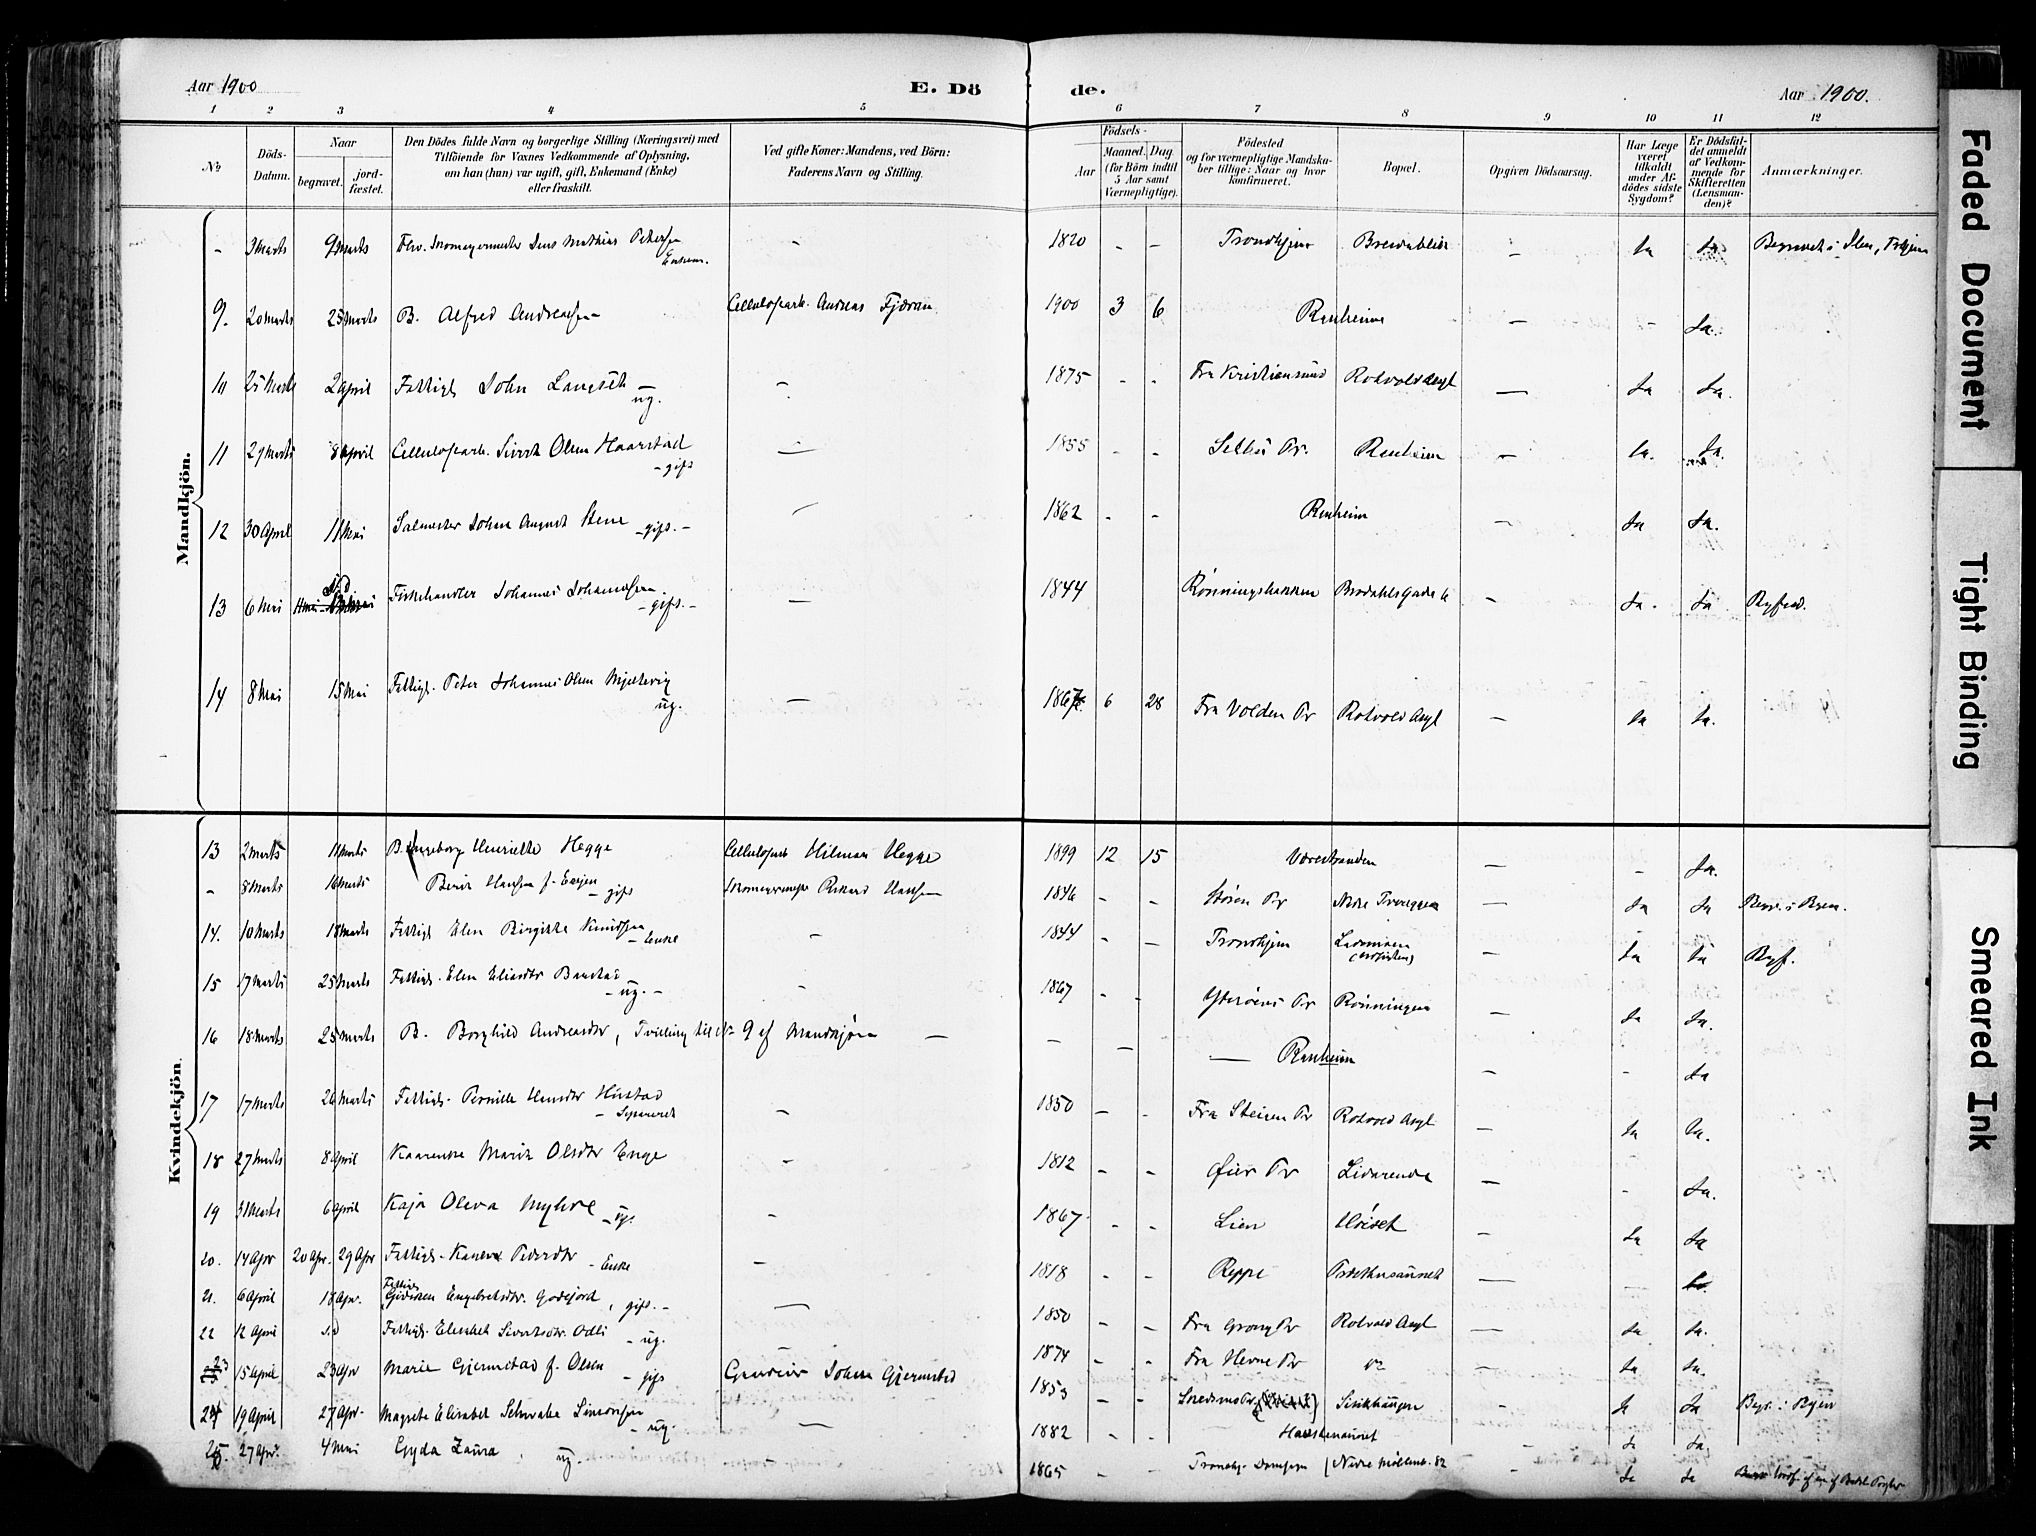 Aar 1900
E. Dö
de.
Aar 1900.
1 2 3 4 5 6 7 8 9 10 11 12
No
Döds-Datum.
Naar
begravet.
jord-fæstet.
Den Dödes fulde Navn og borgerlige Stilling (Næringsvei) med
Tilföiende for Voxnes Vedkommende af Oplysning,
om han (hun) var ugift, gift, Enkemand (Enke)
eller fraskilt.
Ved gifte Koner: Mandens, ved Börn:
Faderens Navn og Stilling.
Födsels-
Aar
Maaned. Dag
(for Börn indtil
5 Aar samt
Værnepligtige).
Födested
og for værnepligtige Mandska-
ber tillige: Naar og hvor
konfirmeret.
Bopæl.
Opgiven Dödsaarsag.
Har Læge
været
tilkaldt
under Af-
dödes sidste
Sygdom?
Er Dödsfal-
det anmeldt
af Vedkom-
mende for
Skifteretten
(Lensman-
den)?
Anmærkninger.
Mandkjön.
- 3 Marts 9 Marts Skomagermester Jens Mathias Petersen - 1820 - - Trondhjem - Ja Ja Begravet i Ilen, Trhjem
9. 20 Marts 25 Marts B. Alfred Andreassen Cellulosearb. Andreas Fjæran 1900 3 6 Ranheim - - Ja.
10 25 Marts 2 April Fattigl. John Langseth - ug. - 1875 - - Fra Kristiansund Rotvold Asyl - Ja Ja.
11 29 Marts 8 April Cellulosearb. Sivert Olsen Haarstad - gift - 1855 - - Selbu Pr. Ranheim - Ja. Ja.
12 30 April 11 Mai Salmester Johan August Stene - gift. - 1862 - - Ranheim - Ja Ja.
13 6 Mai Fiskehandler Johannes Johannessen - gift. - - 1844 Rønningsbakken Brodahlsgade - Ja. Ja Byfred.
14 8 Mai 15 Mai Fattigl. Peter Johannes Olsen ug. - 1867 6 28 Fra Volden Pr Rotvold Asyl - Ja Ja.
Kvindekjön.
13 2 Marts 11 Marts B. Ingeborg Henriette Hegge Cellulosearb Hilmar Hegge 1899 12 15 Værestranden - - Ja.
- 8 Marts 16 Marts Berit Hansen f. - gift Skomagermester Rikard Hansen 1846 - - Støren Pr Nedre - Ja Ja Begr. i Byen.
14. 10 Marts 18 Marts Fattigl Elen Birgitte Knudsen - Enke - 1844 - - Trondhjem Lademoen - Ja Ja Byf.
15 17 Marts 25 Marts Fattigl. Elen Eliasdtr - ug. - - 1867 - - Ytterøens Pr Rønningen - Ja Ja.
16 18 Marts 25 Marts B. Borghild Andreasdtr, Tvilling til No 9 af Mandkjøn - - - Ranheim - - Ja
17 17 Marts 26 Marts Fattigl. Pernille Hansdtr Hustad - Separeret - 1850 - - Fra Steinen Pr Rotvold Asyl - Ja Ja.
18 27 Marts 8 April Kaarenke Marit Olsdtr Enge - 1812 - - Øier Pr Lidarende - - Ja.
19 31 Marts 6 April Kaja Oleva Myhre - ug. - 1867 - - Lien - Ja Ja
20. 14 Apr 20 Apr. 29 Apr Fattigl. Karen Pedersdtr - Enke - 1818 - - Reppe - -
21. 6 April 18 Apr. Fattigl Engebretsdtr. Godejord, gift. - - 1850 - - Fra Grong Pr Rotvold Asyl - Ja Ja.
22 12 April Fattigl. Elisabet Sivertsdtr. Odli - ug. - 1874 - - Fra Hevne Pr - Ja Ja.
23 15 April 23 Apr Marie Gjermstad f. Olsen - gift Gaardeier Johan Gjermstad 1853 - - - Ja Ja Begr. i Byen
24 19 April 27 Apr. Magrete Elisabet Schwabe Simonsen - ug. - 1882 - - - Ja Ja.
25. 27 Apr. 4 Mai Gyda Laura, ug. - 1865 - - Nedre Møllenb. 82 - Ja Ja
Faded Document
Tight Binding
Smeared Ink